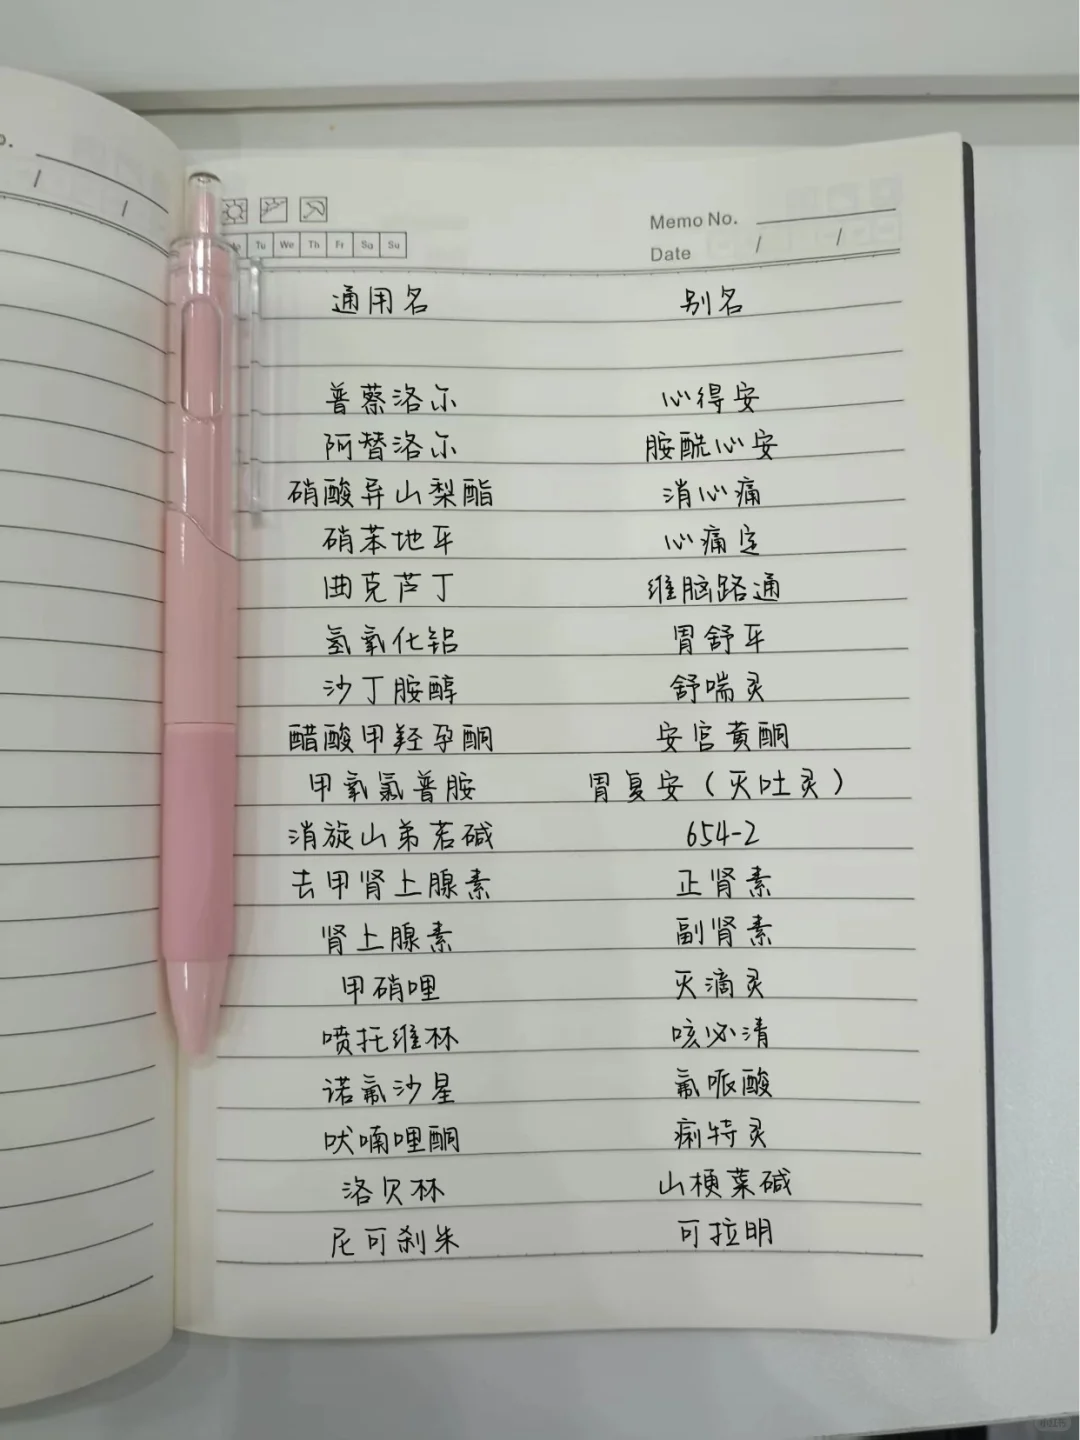 Memo No.
Tu We Th Fr Sa Su
Date / /
通用名 别名
普萘洛尔 心得安
阿替洛尔 胺酰心安
硝酸异山梨酯 消心痛
硝苯地平 心痛定
曲克芦丁 维脑路通
氢氧化铝 胃舒平
沙丁胺醇 舒喘灵
醋酸甲羟孕酮 安宫黄酮
甲氧氯普胺 胃复安（灭吐灵）
消旋山莨菪碱 654-2
去甲肾上腺素 正肾素
肾上腺素 副肾素
甲硝哩 灭滴灵
喷托维林 咳必清
诺氟沙星 氟哌酸
呋喃哩酮 痢特灵
洛贝林 山梗菜碱
尼可刹米 可拉明